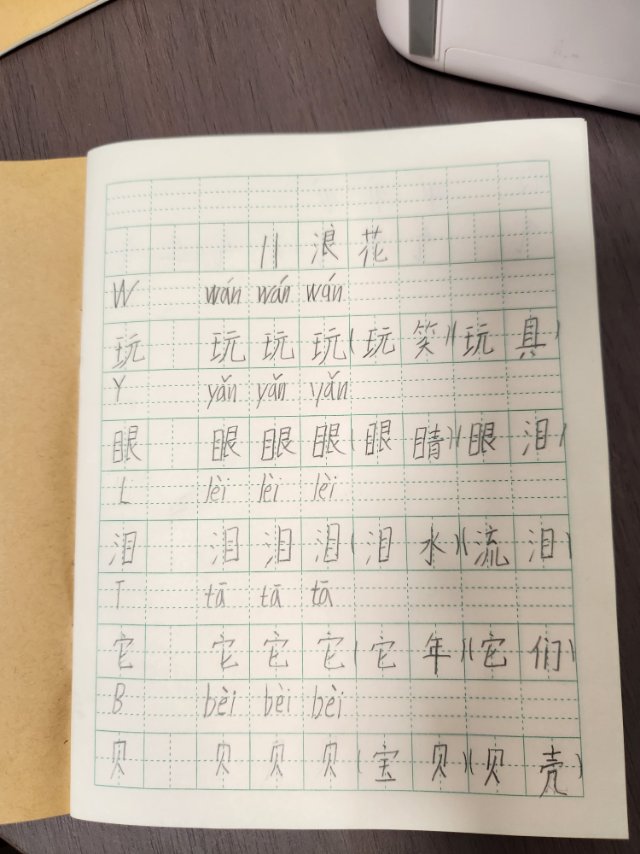 11 浪花
W wán wán wán
玩 玩 玩 玩(玩笑)(玩具)
Y yǎn yǎn yǎn
眼 眼 眼 眼(眼睛)(眼泪)
L lèi lèi lèi
泪 泪 泪 泪(泪水)(流泪)
T tā tā tā
它 它 它 它(它年)(它们)
B bèi bèi bèi
贝 贝 贝 贝(宝贝)(贝壳)